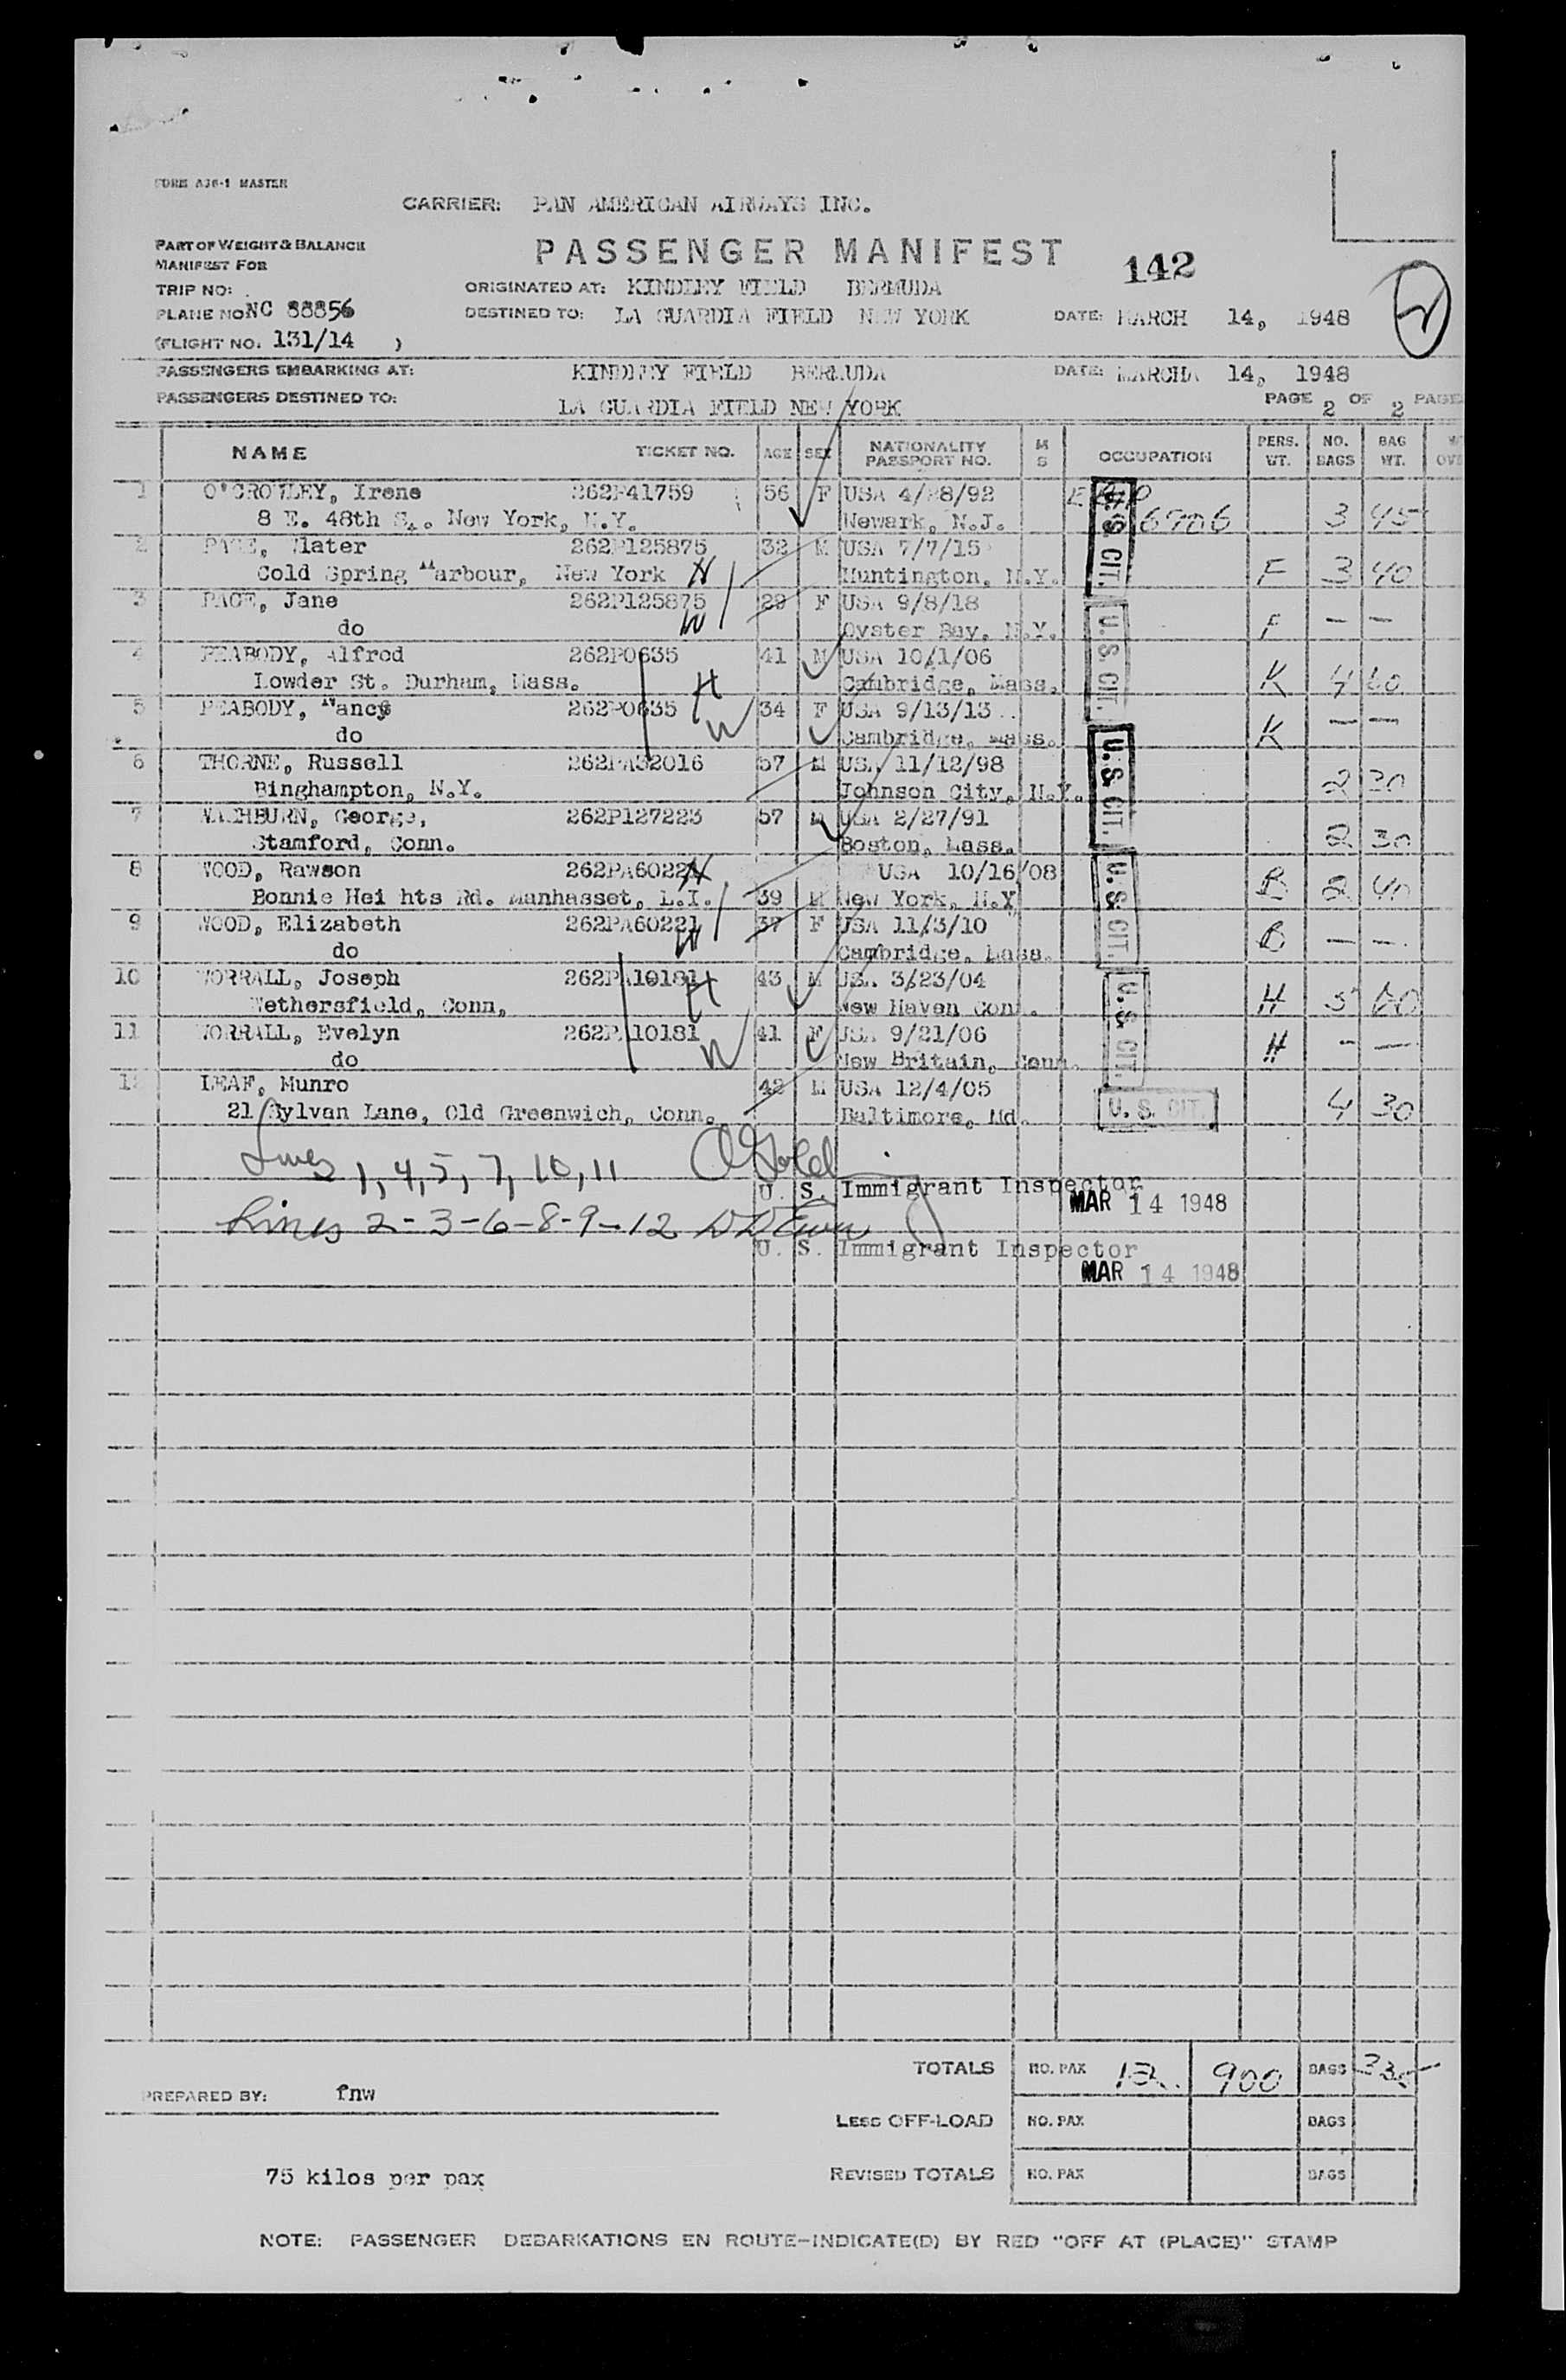 FORM A36-1 MASTER
CARRIER: PAN AMERICAN AIRWAYS INC.
PART OF WEIGHT & BALANCE
MANIFEST FOR
PASSENGER MANIFEST
142
2
TRIP NO:
ORIGINATED AT: KINDLEY FIELD BERMUDA
PLANE NO NC 88856
DESTINED TO: LA GUARDIA FIELD NEW YORK
DATE: MARCH 14, 1948
(FLIGHT NO. 131/14 )
PASSENGERS EMBARKING AT: KINDLEY FIELD BERMUDA DATE: MARCH 14, 1948
PASSENGERS DESTINED TO: LA GUARDIA FIELD NEW YORK PAGE 2 OF 2 PAGE
NAME TICKET NO. AGE SEX NATIONALITY PASSPORT NO. M S OCCUPATION PERS. WT. NO. BAGS BAG WT.
1 O'CROWLEY, Irene 262P41759 56 F USA 4/28/92
8 E. 48th St. New York, N.Y. Newark, N.J. 3 45
2 PAGE, Walter 262P125875 32 M USA 7/7/15
Cold Spring Harbour, New York H Huntington, N.Y. F 3 40
3 PAGE, Jane 262P125875 29 F USA 9/8/18
do W Oyster Bay, N.Y. F — —
4 PEABODY, Alfred 262P0635 41 M USA 10/1/06
Lowder St. Durham, Mass. H Cambridge, Mass. K 4 60
5 PEABODY, Nancy 262P0635 34 F USA 9/13/13
do W Cambridge, Mass. K — —
6 THORNE, Russell 262PA32016 57 M USA 11/12/98
Binghampton, N.Y. Johnson City, N.Y. 2 30
7 WASHBURN, George, 262P127223 57 M USA 2/27/91
Stamford, Conn. Boston, Mass. 2 30
8 WOOD, Rawson 262PA60221 H USA 10/16/08
Bonnie Hei hts Rd. Manhasset, L.I. 39 M New York, N.Y B 2 40
9 WOOD, Elizabeth 262PA60221 37 F USA 11/3/10
do W Cambridge, Mass. B — —
10 WORRALL, Joseph 262PA10181 43 M USA 3/23/04
Wethersfield, Conn, H New Haven Conn. H 5 60
11 WORRALL, Evelyn 262PA10181 41 F USA 9/21/06
do W New Britain, Conn. H — —
12 LEAF, Munro 42 M USA 12/4/05
21 Sylvan Lane, Old Greenwich, Conn. Baltimore, Md. 4 30
U.S. CIT.
U.S. CIT.
U.S. CIT.
U.S. CIT.
U.S. CIT.
U. S. CIT.
Lines 1, 4, 5, 7, 10, 11
U. S. Immigrant Inspector
MAR 14 1948
Lines 2-3-6-8-9-12
U. S. Immigrant Inspector
MAR 14 1948
TOTALS NO. PAX 12 900 BAGS 335
PREPARED BY: fnw
LESS OFF-LOAD NO. PAX BAGS
75 kilos per pax
REVISED TOTALS NO. PAX BAGS
NOTE: PASSENGER DEBARKATIONS EN ROUTE-INDICATE(D) BY RED "OFF AT (PLACE)" STAMP